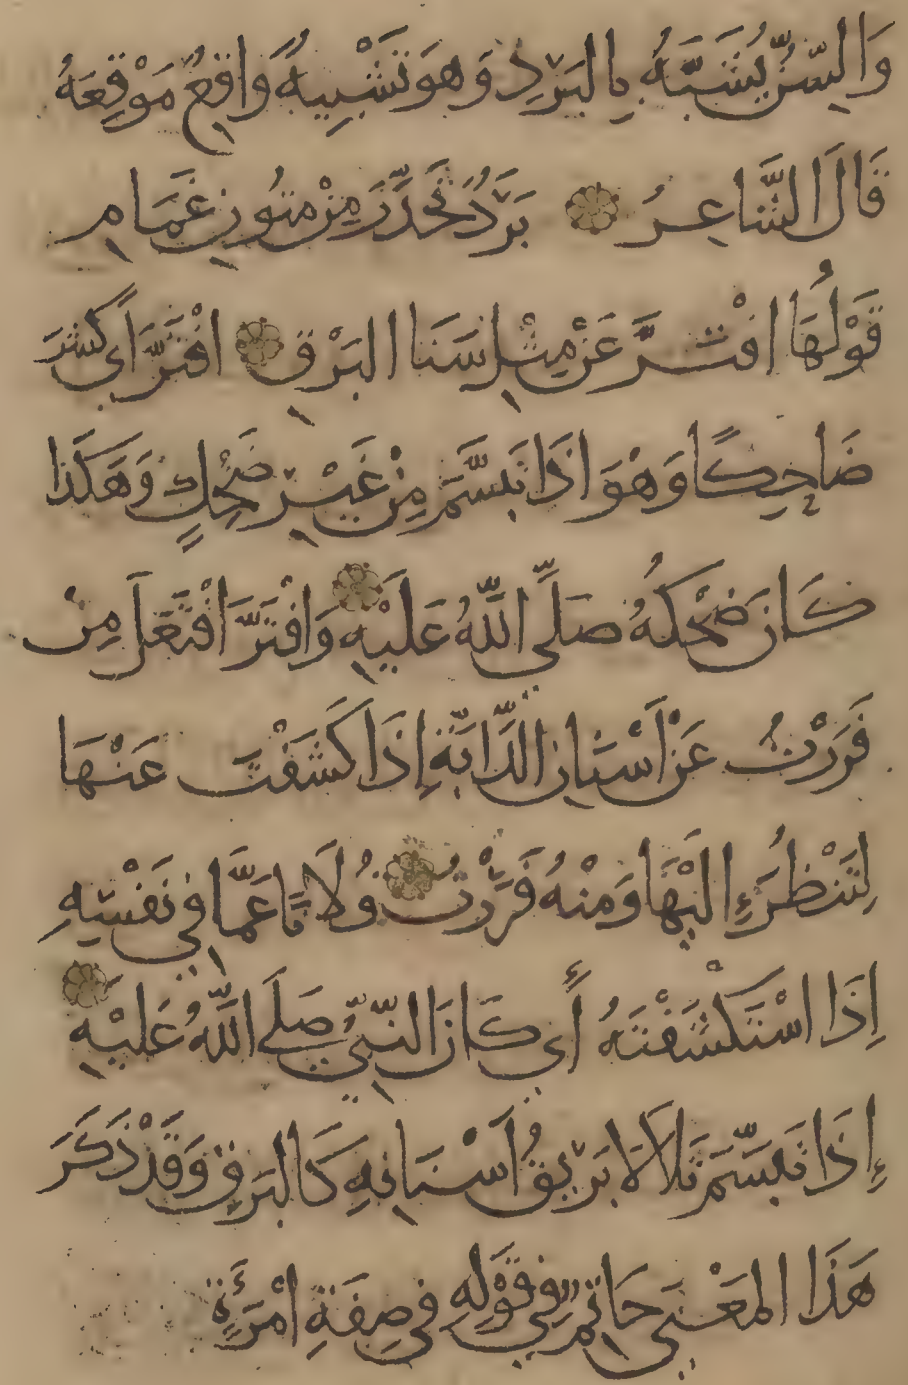 وَالسِّنُّ يُشَبَّهُ بِالبَرَدِ وَهوَ تَشْبِيهٌ وَاقِعٌ مَوْقِعَهُ
قَالَ الشَّاعِرُ بَرَدٌ تَحَدَّرَ مِنْ مُتُونِ غَمَامِ
قَوْلُهَا افْتَرَّ عَنْ مِثْلِ سَنَا البَرْقِ افْتَرَّ أَي كَشَرَ
ضَاحِكًا وَهْوَ اذَا تَبَسَّمَ مِنْ غَيْرِ ضَحِكٍ وَهَكَذَا
كَانَ ضَحْكُهُ صَلَّى اللَّهُ عَلَيْهِ وَافْتَرَّ افْتَعَلَ مِنْ
فَرَرْتُ عَنْ أَسْنَانِ الدَّابَّةِ إِذَا كَشَفْتَ عَنْهَا
لِتَنْظُرَ إِلَيْهَا وَمِنْهُ فَرَرْتُ فُلَانًا عَمَّا فِي نَفْسِهِ
إِذَا اسْتَكْشَفْتَهُ أَي كَانَ النَّبِيُّ صَلَّى اللَّهُ عَلَيْهِ
إِذَا تَبَسَّمَ تَلَالَا بَرِيقُ أَسْنَانِهِ كَالبَرقِ وَقَدْ ذَكَرَ
هَذَا المَعْنَى حَاتِمٌ فِي قَوْلِهِ فِي صِفَةِ امْرَأَةٍ